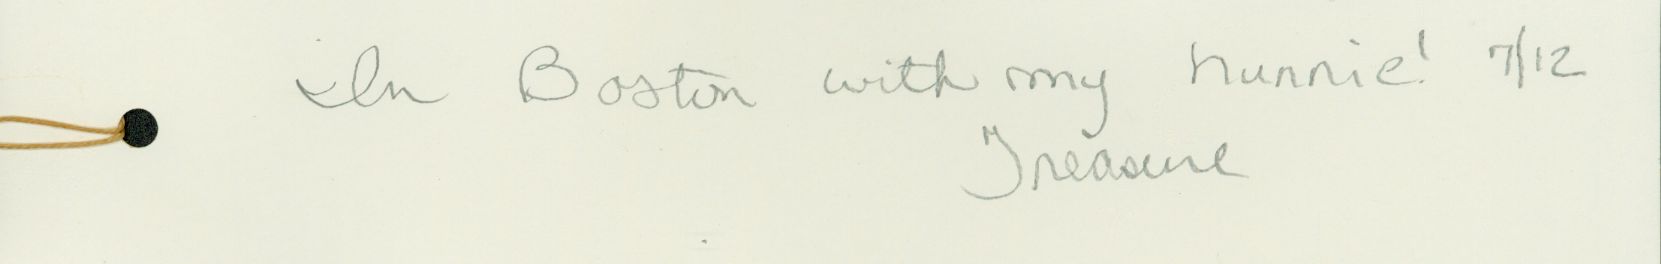 In Boston with my hunnie! 7/12
Treasure